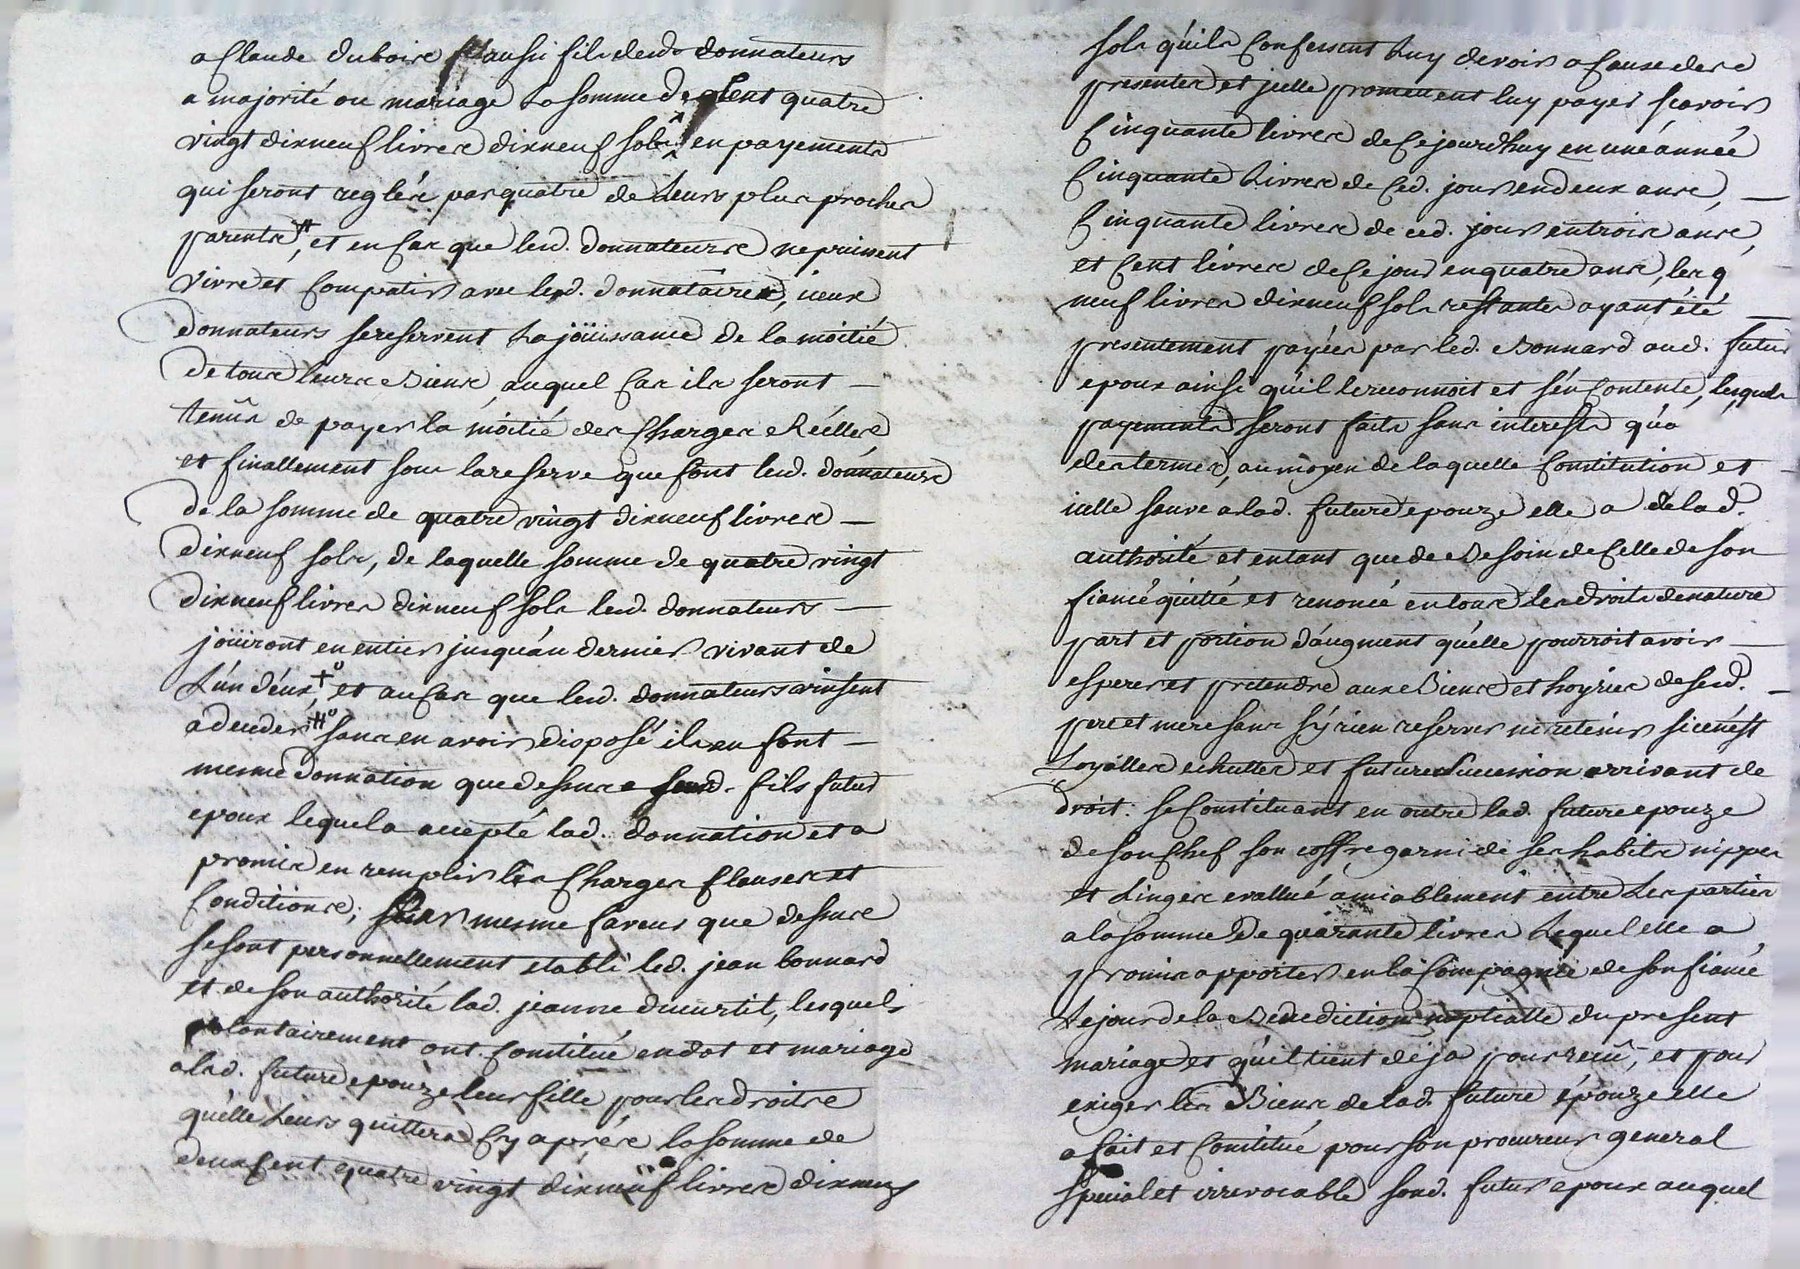 a Claude duboire aussi fils desd. donnateurs
a majorité ou mariage la somme de cent quatre
vingt dixneuf livres dixneuf sols en payements
qui seront reglés par quatre de Leurs plus proches
parents #, et en Cas que lesd. donnateurs ne puissent
vivre et Compatir avec lesd. donnataires, iceux
donnateurs se reservent La joüissance de la moitié
de tous leurs Biens, auquel Cas ils seront —
tenûs de payer la moitié des Charges Réélles
et finallement sous la reserve que font lesd. donnateurs
de la somme de quatre vingt dixneuf livres —
dixneuf sols, de laquelle somme de quatre vingt
dixneuf livres dixneuf sols lesd. donnateurs —
joüiront en entier jusqu'au dernier vivant de
L'un d'eux, + et au Cas que lesd. donnateurs vinsent
a deceder # sans en avoir disposé ils en font —
mesme donnation que dessus a leurd. fils futur
epoux lequel a accepté lad. donnation et a
promis en remplir les Charges Clauses et
Conditions; mesme faveur que dessus
se sont personnellement etabli led. jean bonnard
et de son authorité lad. jeanne ducurtil, lesquels
volontairement ont Constitué en dot et mariage
a lad. future epouze leur fille pour les droits
qu'elle Leurs quittera Cy après la somme de
deux Cent quatre vingt dixneuf livres dixneuf
sols qu'ils Confessent Luy devoir a Cause des
presentes et jcelle promettent luy payer sçavoir
Cinquante livres de Ce jourdhuy en une année
Cinquante Livres de Ced. jour en deux ans, —
Cinquante livres de ced. jour en trois ans,
et Cent livres de Ce jour en quatre ans, les q
neuf livres dixneuf sols restantes ayant été —
presentement payées par led. Bonnard aud. futur
epoux ainsi qu'il le reconnoit et s'en Contente, lesquels
payements seront faits sans interests qu'a
des termes, au moyen de laquelle Constitution et —
icelle sauve a lad. future epouze elle a de lad.
authorité et entant que de Besoin de Celle de son
fiancé quitté et renoncé en tous les droits de nature
part et portion d'augment qu'elle pourroit avoir —
esperer et pretendre aux Biens et hoyries de sesd. —
pere et mere sans s'y rien reserver ni retenir si ce n'est
Loyalles echuttes et future Succession arrivant de
droit: se Constituant en outre lad. future epouze
de son Chef son coffre garni de ses habits nippes
et Linges evallué amiablement entre Les parties
a la somme de quarante livres Lequel elle a
promis apporter en la Compagnie de son fiancé
Le jour de la Benediction nuptialle du present
mariage et qu'il tient déja pour reçû, et pour
exiger les Biens de lad. future épouze elle
a fait et Constitué pour son procureur general
special et irrevocable sond. futur epoux auquel